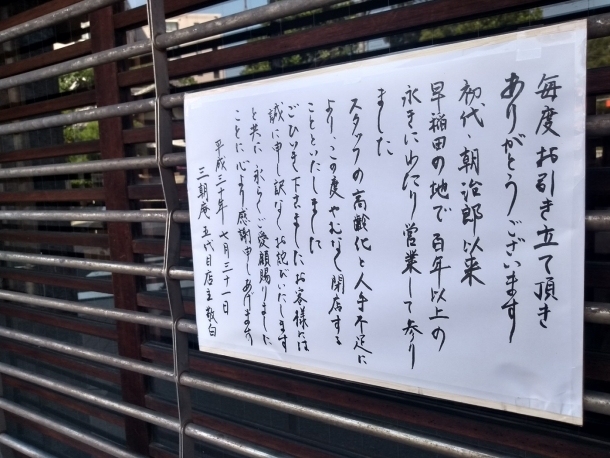 毎度お引き立て頂き
ありがとうございます
初代・朝治郎以来
早稲田の地で百年以上の
永きにわたり営業して参り
ました
スタッフの高齢化と人手不足に
より、この度やむなく閉店する
ことといたしました
ごひいき下さいましたお客様には
誠に申し訳なくお詫びいたします
と共に永らくご愛顧賜りました
ことに心より感謝申しあげます
平成三十年 七月三十一日
三朝庵 五代目店主敬白